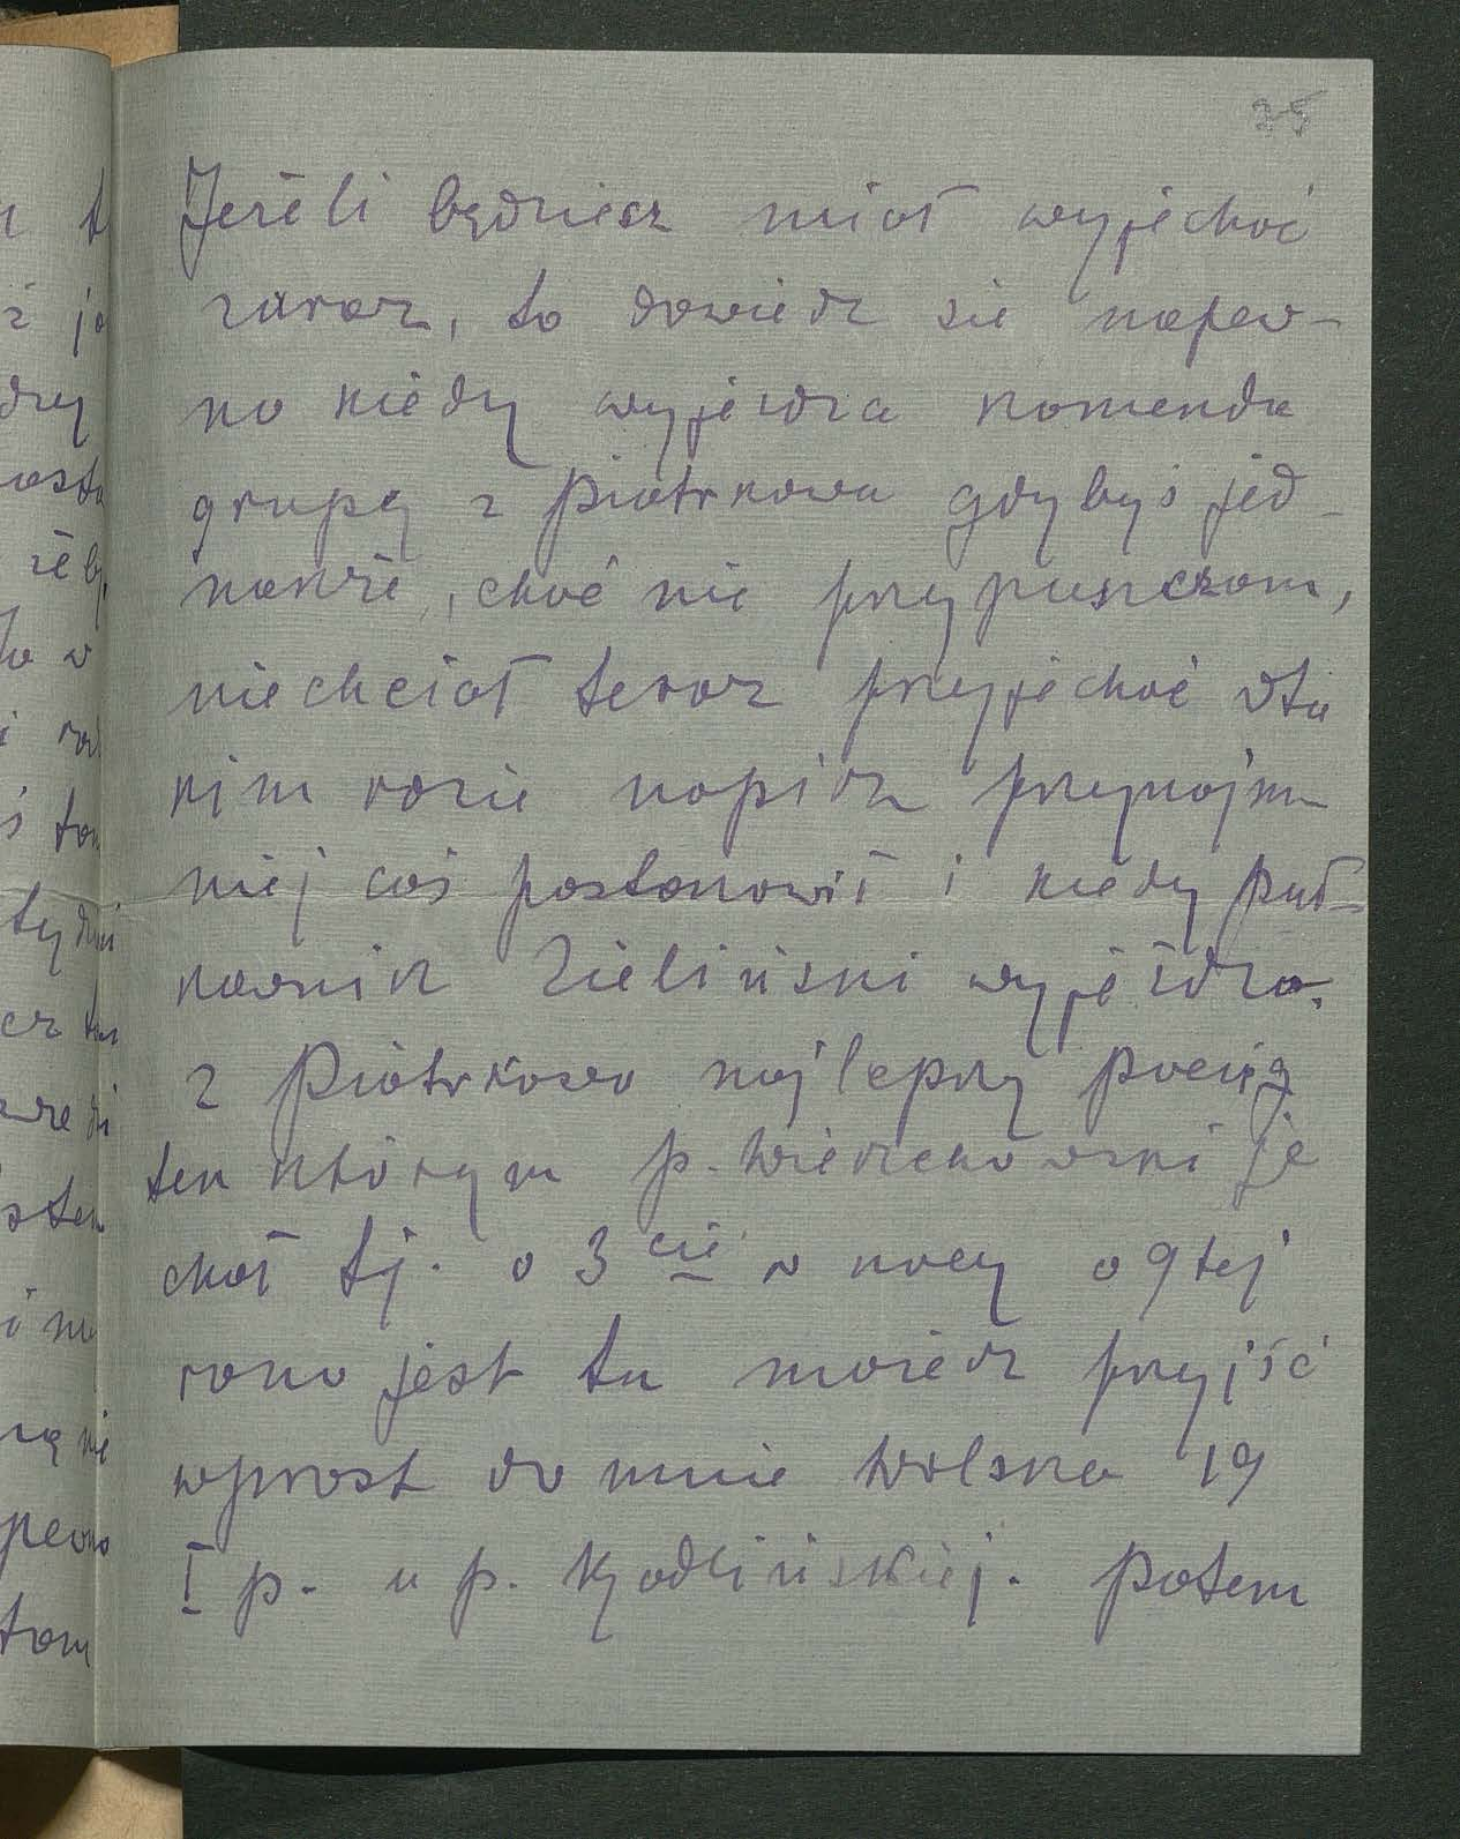 35
Jeżeli będziesz miał wyjechać
zaraz, to dowiedz sie napew-
no kiedy wyjeżdża komenda
grupy z Piotrkowa gdybyś jed-
nakże, choć nie przypuszczam,
niechciał teraz przyjechać wta
kim razie napisz przynajm-
niej coś postanowił i kiedy puł-
kownik Zieliński wyjeżdża.
z Piotrkowa najlepszy pociąg
ten którym p. Wierzchowski je
chał tj. o 3cie w nocy o 9tej
rano jest tu możesz przyjść
wprost do mnie Wolska 19
I p. u p. Kądlińskiej. Potem